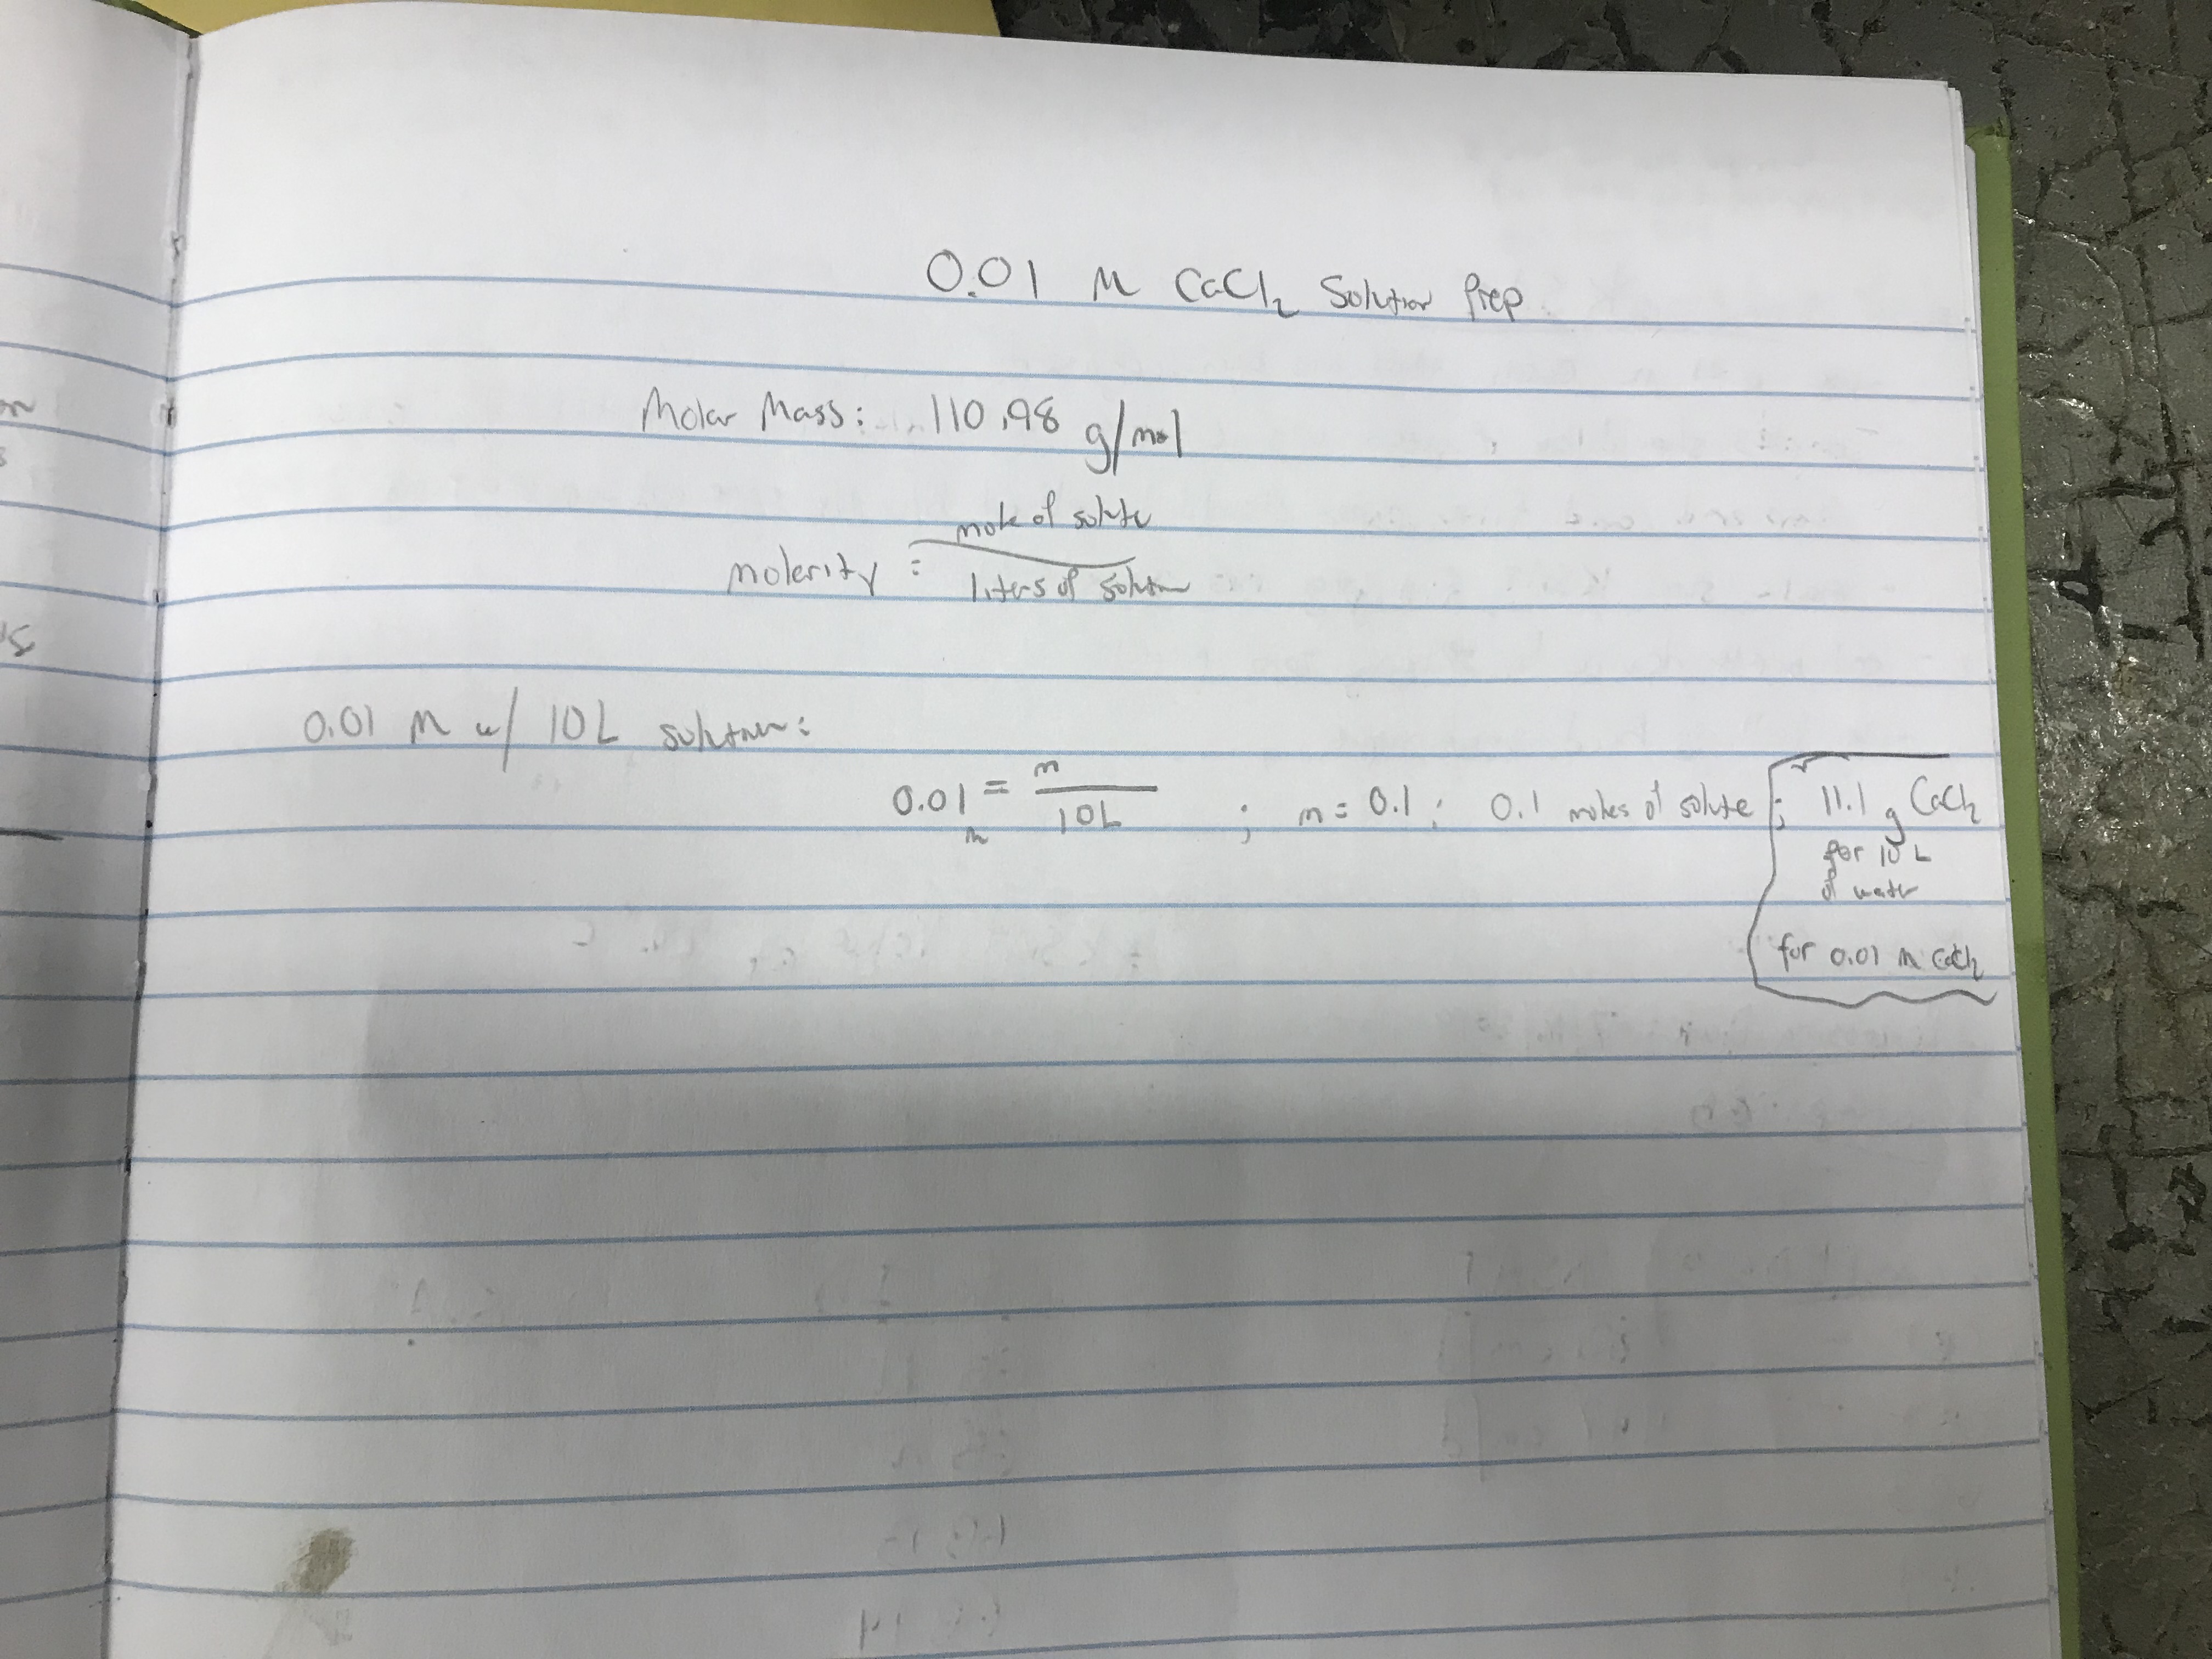 0.01 M CaCl2 Solution Prep
Molar Mass: 110.98 g/mol
mole of solute
molerity =
liters of solution
0.01 M w/ 10L solution:
0.01 M = m / 10L ; m = 0.1 ; 0.1 moles of solute ; 11.1 g CaCl2
for 10 L
of water
for 0.01 M CaCl2